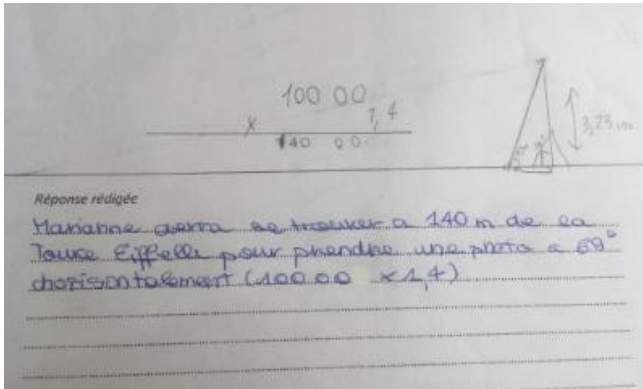 100 00
x 1,4
140 00
3,23 cm
Réponse rédigée
Marianne devra se trouver a 140 m de la
Tource Eiffelle pour prendre une photo a 69°
chorisontalement (100 00 x 1,4)